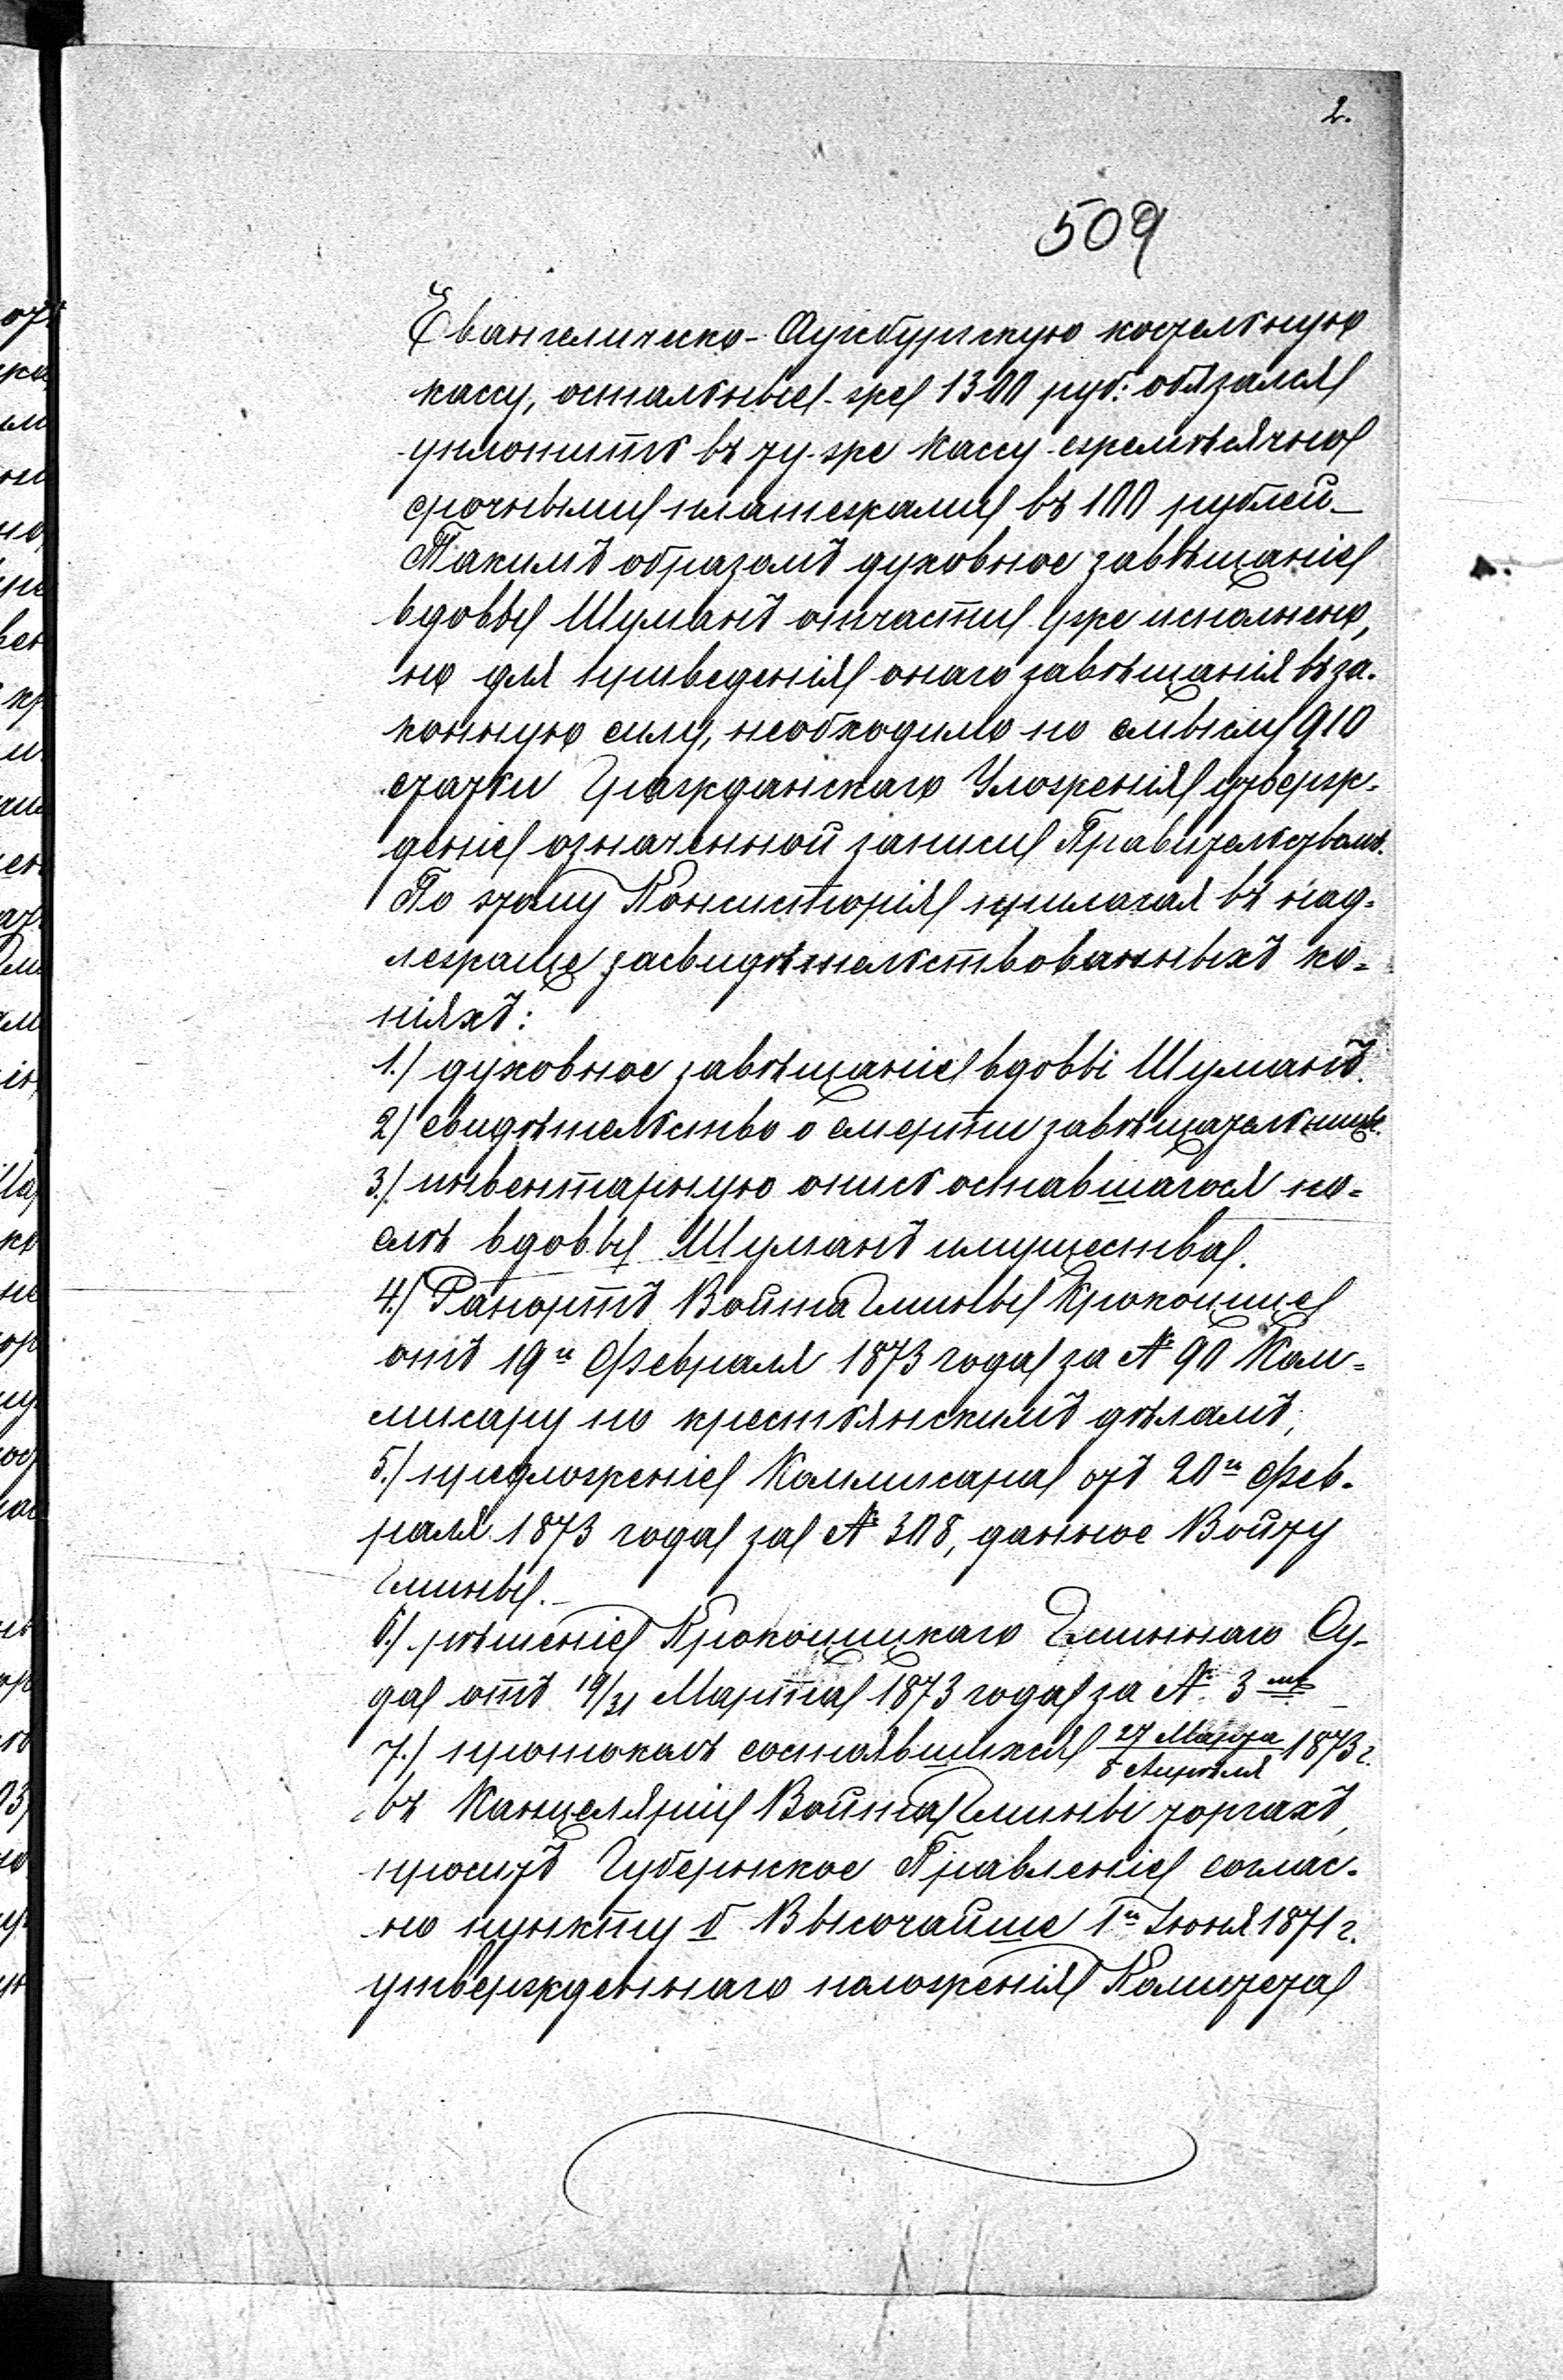 2.
509
Евангелическо-Аугсбургскую костельную
кассу, остальные-же 1300 руб: обязался
уплотить въ ту-же кассу-ежемѣсячно
срочными платежами въ 100 рублей_
Такимъ образомъ духовное завѣщаніе
вдовы Шуманъ отчасти уже исполнено,
но для приведенія онаго завѣщанія въ за-
конную силу, необходимо по смыслу 910
статьи Гражданскаго Уложенія утверж-
деніе означенной записи Правительствомъ.
По этому Консисторія прилагая въ над-
лежаще засвидѣтельствованныхъ ко-
піяхъ:
1./ духовное завѣщаніе вдовы Шуманъ.
2/ свидѣтельство о смерти завѣщательницы.
3./ инвентарную опись оставшагося по-
слѣ вдовы Шуманъ имущества.
4./ Рапортъ Войта Гмины Крокошице
отъ 19го Февраля 1873 года за № 90 Ком-
мисару по крестьянскимъ дѣламъ;
5./ предложеніе Коммисара отъ 20го Фев-
раля 1873 года за № 308, данное Войту
Гмины._
6./ рѣшеніе Крокошицкаго Гминнаго Су-
да отъ 19/31 Марта 1873 года за № 3мъ
7./ протоколъ состоявшихся 27 Марта/8 Апрѣля 1873 г.
въ Канцеляріи Войта Гмины торгахъ,
проситъ Губернское Правленіе соглас-
но пункту б Высочайше 1го Іюня 1871 г.
утвержденнаго положенія Комитета